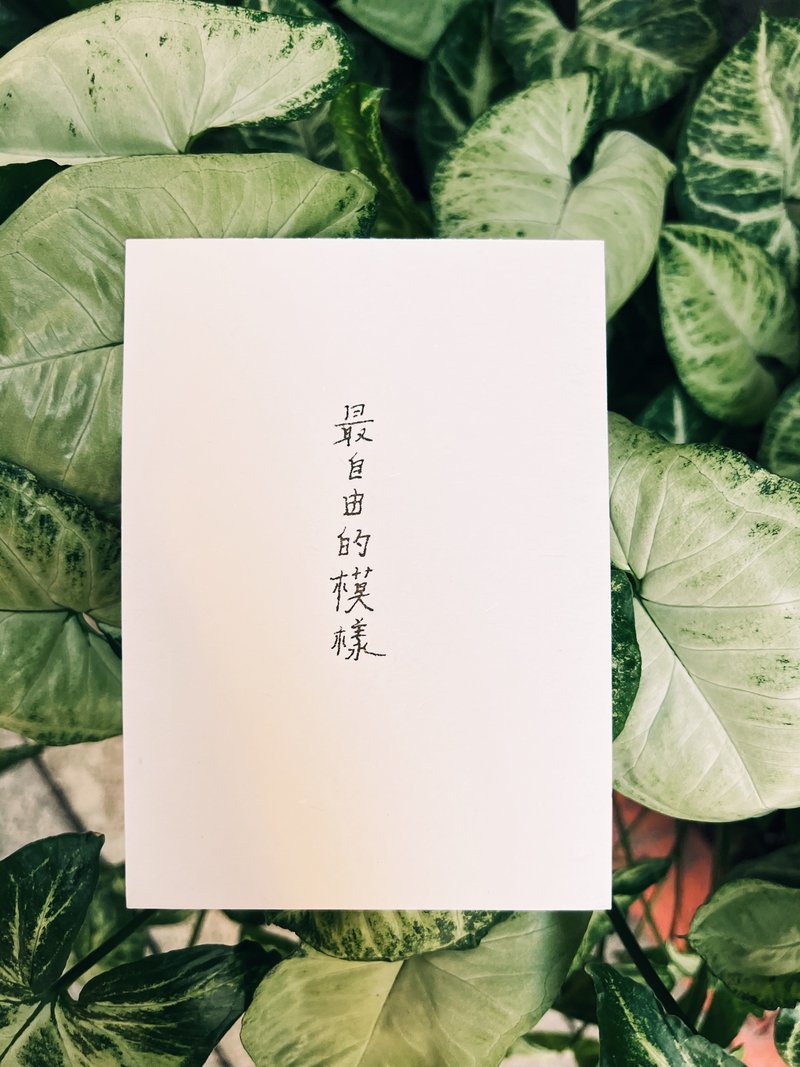 最自由的模樣